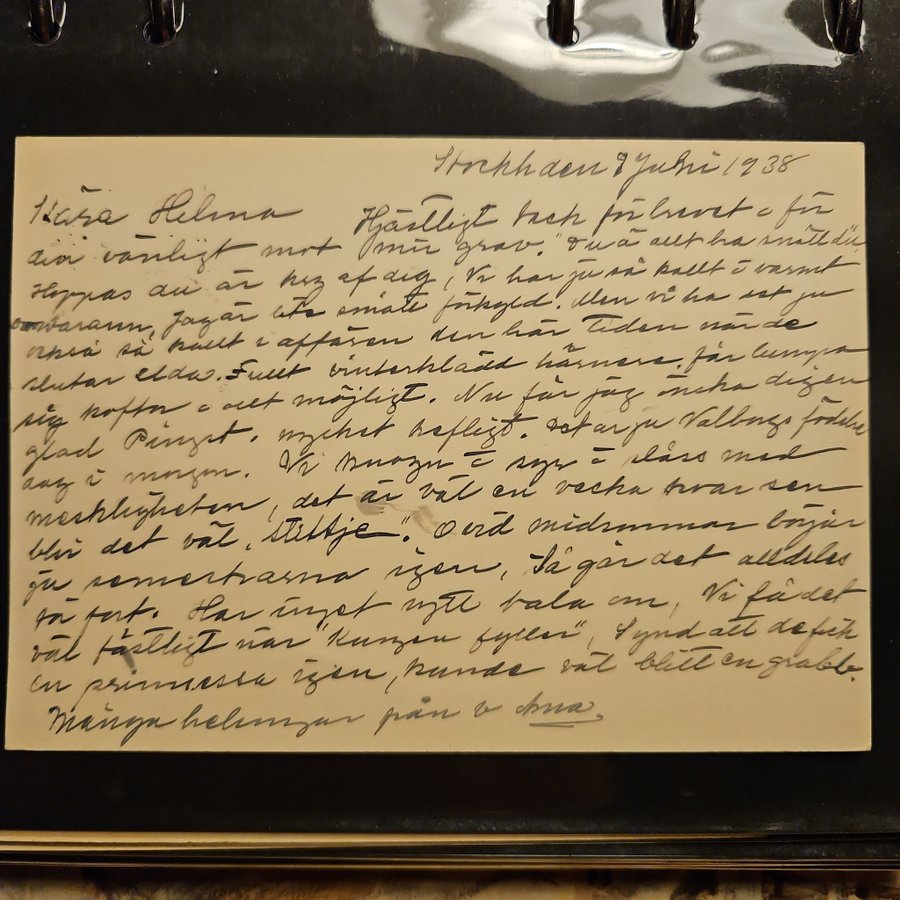 Stockh den 8 Juni 1938
Kära Helma Hjärtligt tack för brevet o för
din vänligt mot mig grav. "Du ä allt bra snäll du"
Hoppas du är kry af dig, Vi har ju så kallt i varmt
varann, Jag är lite smått förkyld. Men vi ha det ju
också så kallt i affären den här tiden när de
slutar elda. Fullt vinterklädd härnere, får lumpa
sig koftor o allt möjligt. Nu får jag önska dig en
glad Pingst. mycket trefligt. Det är ju Valborgs födelse
dag i morgon. Vi knogar i syr i slåss med
meckligheten, det är väl en vecka kvar sen
blir det väl, "stiltje". O vid midsommar börjar
ju semestrarna igen, Så går det alldeles
för fort. Har inget nytt tala om, Vi få det
väl fästligt när "Kungen fyller", Synd att de fick
en prinsessa igen, kunde väl blitt en grabb.
Många helsningar från v Anna.